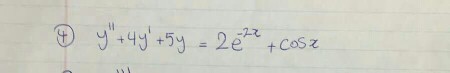 ④ y'' + 4y' + 5y = 2e^{-2x} + cosx